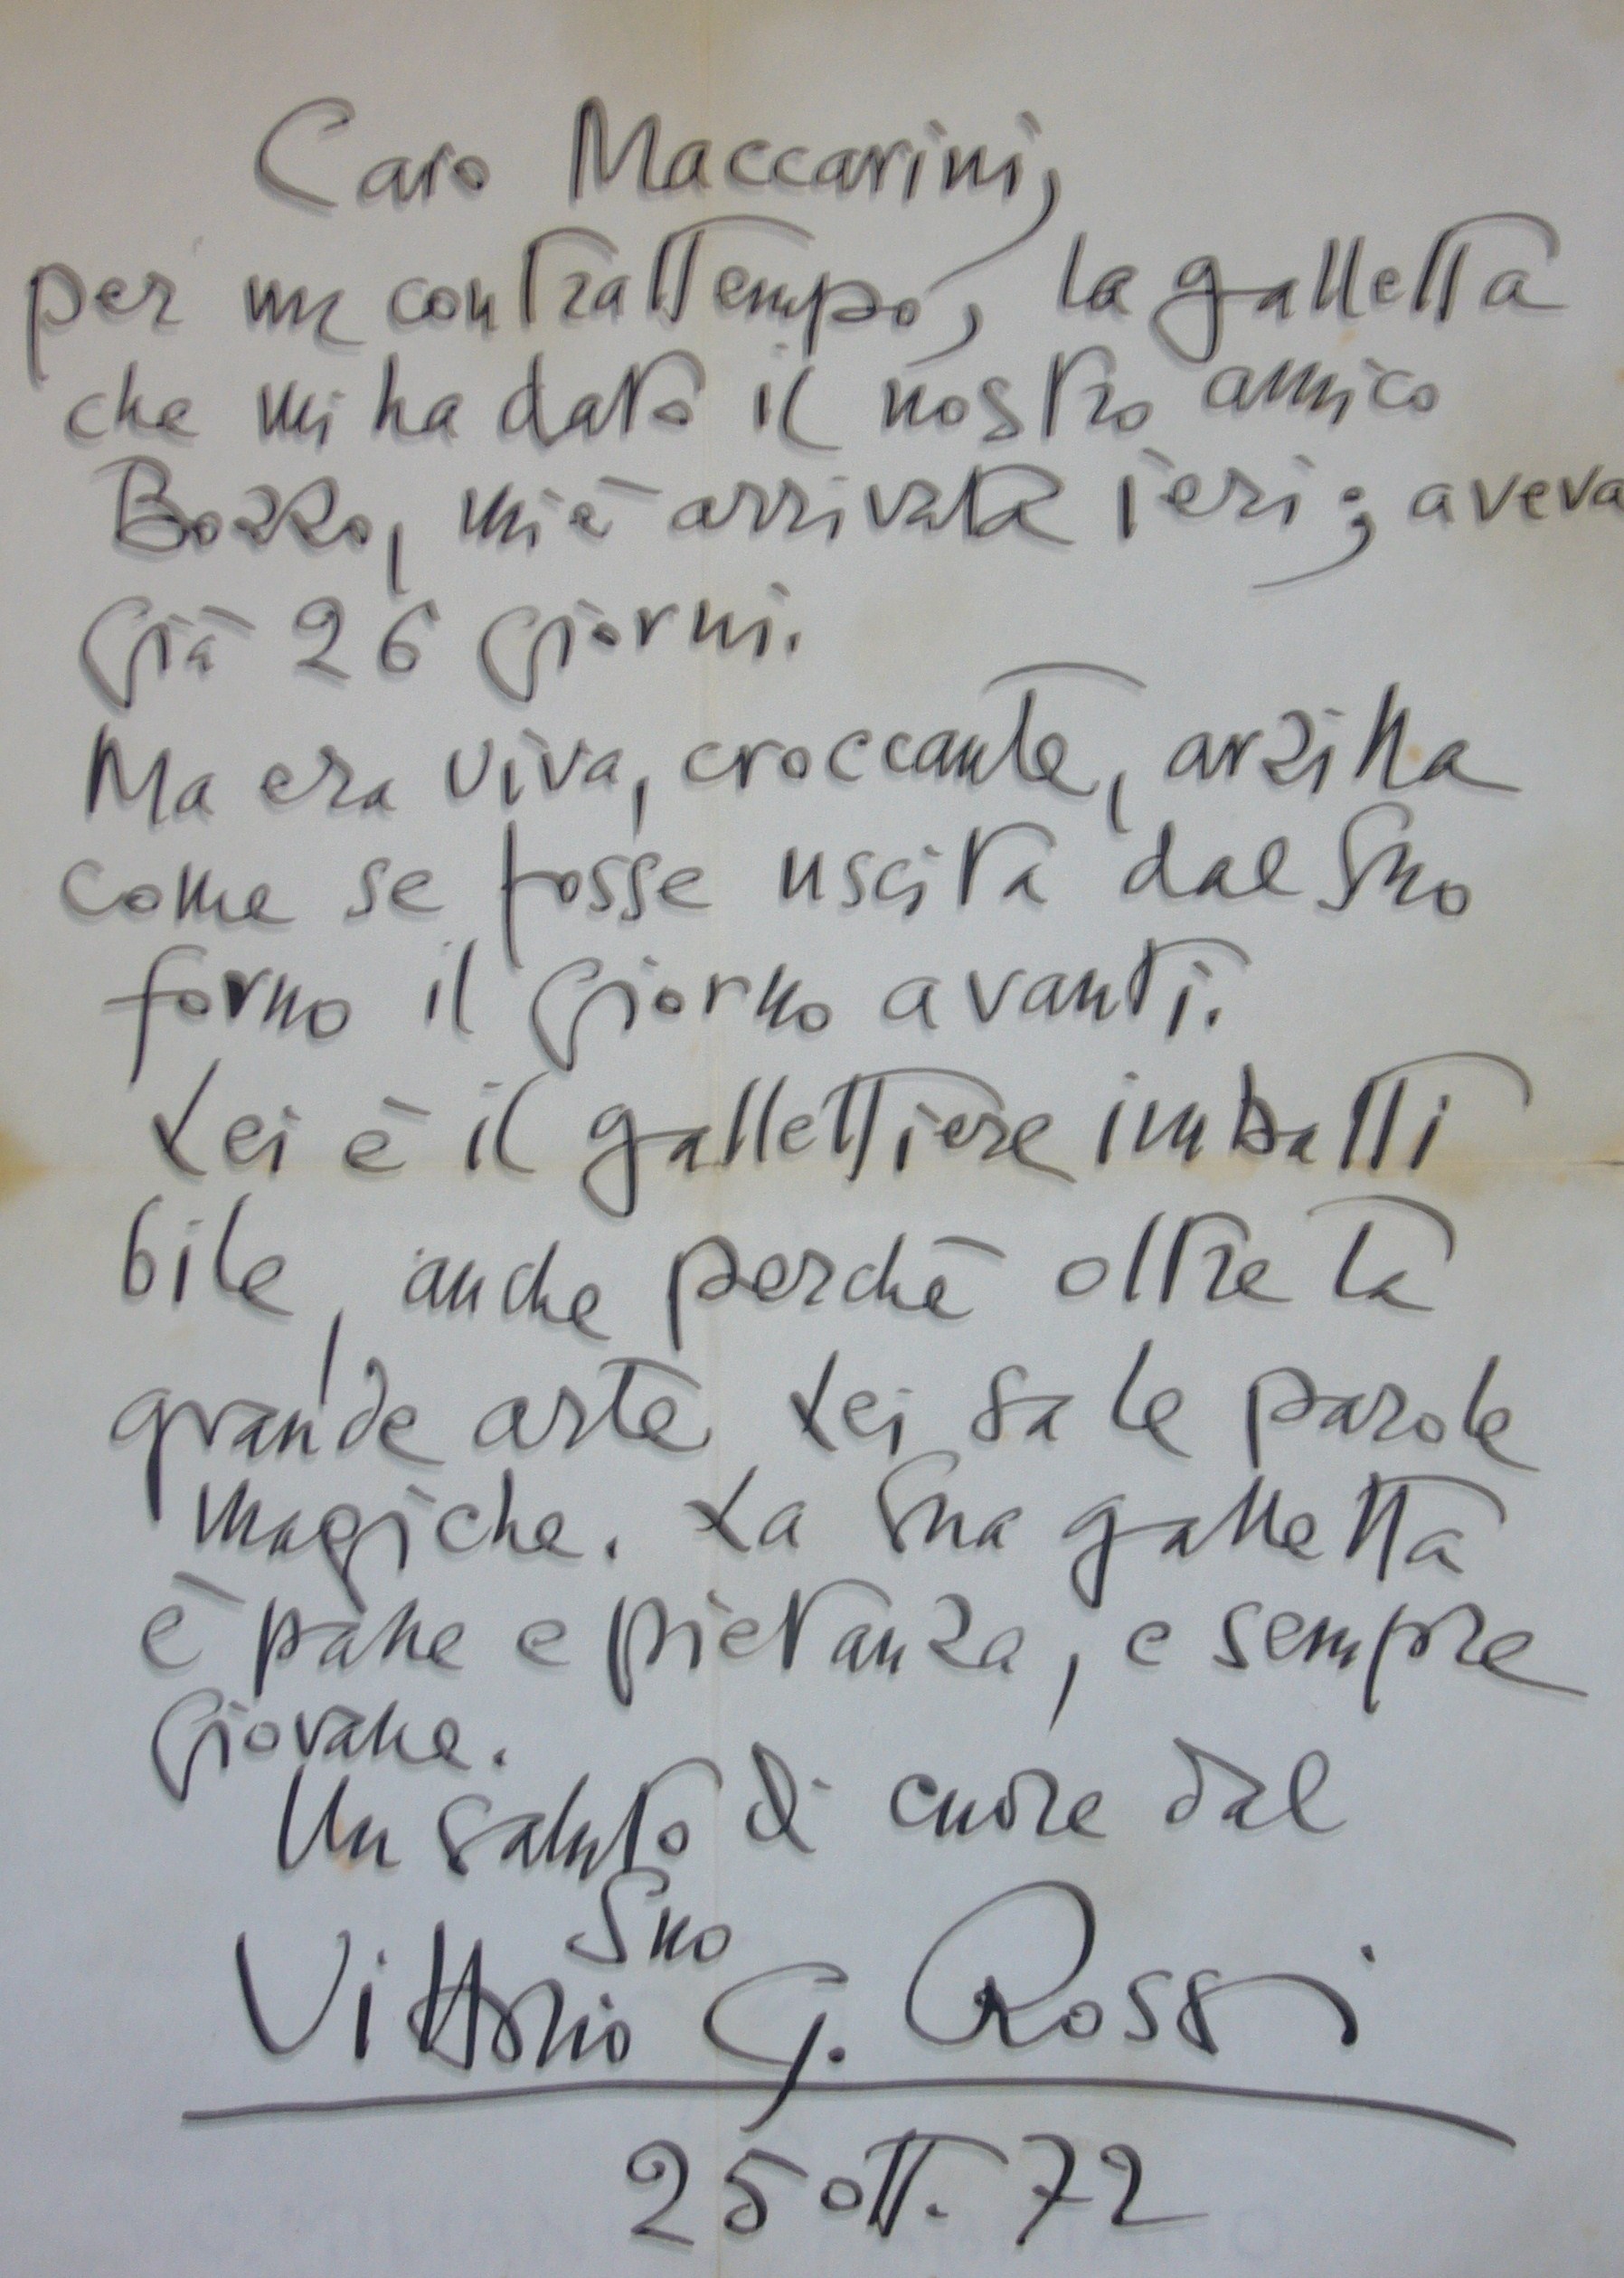 Caro Maccarini,
per un contrattempo, la galletta
che mi ha dato il nostro amico
Bozzo, mi è arrivata ieri; aveva
già 26 giorni.
Ma era viva, croccante, arzilla
come se fosse uscita dal Suo
forno il giorno avanti.
Lei è il gallettiere imbatti
bile, anche perché oltre la
grande arte Lei sa le parole
magiche. La Sua galletta
è pane e pietanza, e sempre
giovane.
Un saluto di cuore dal
Suo
Vittorio G. Rossi
25 ott. 72